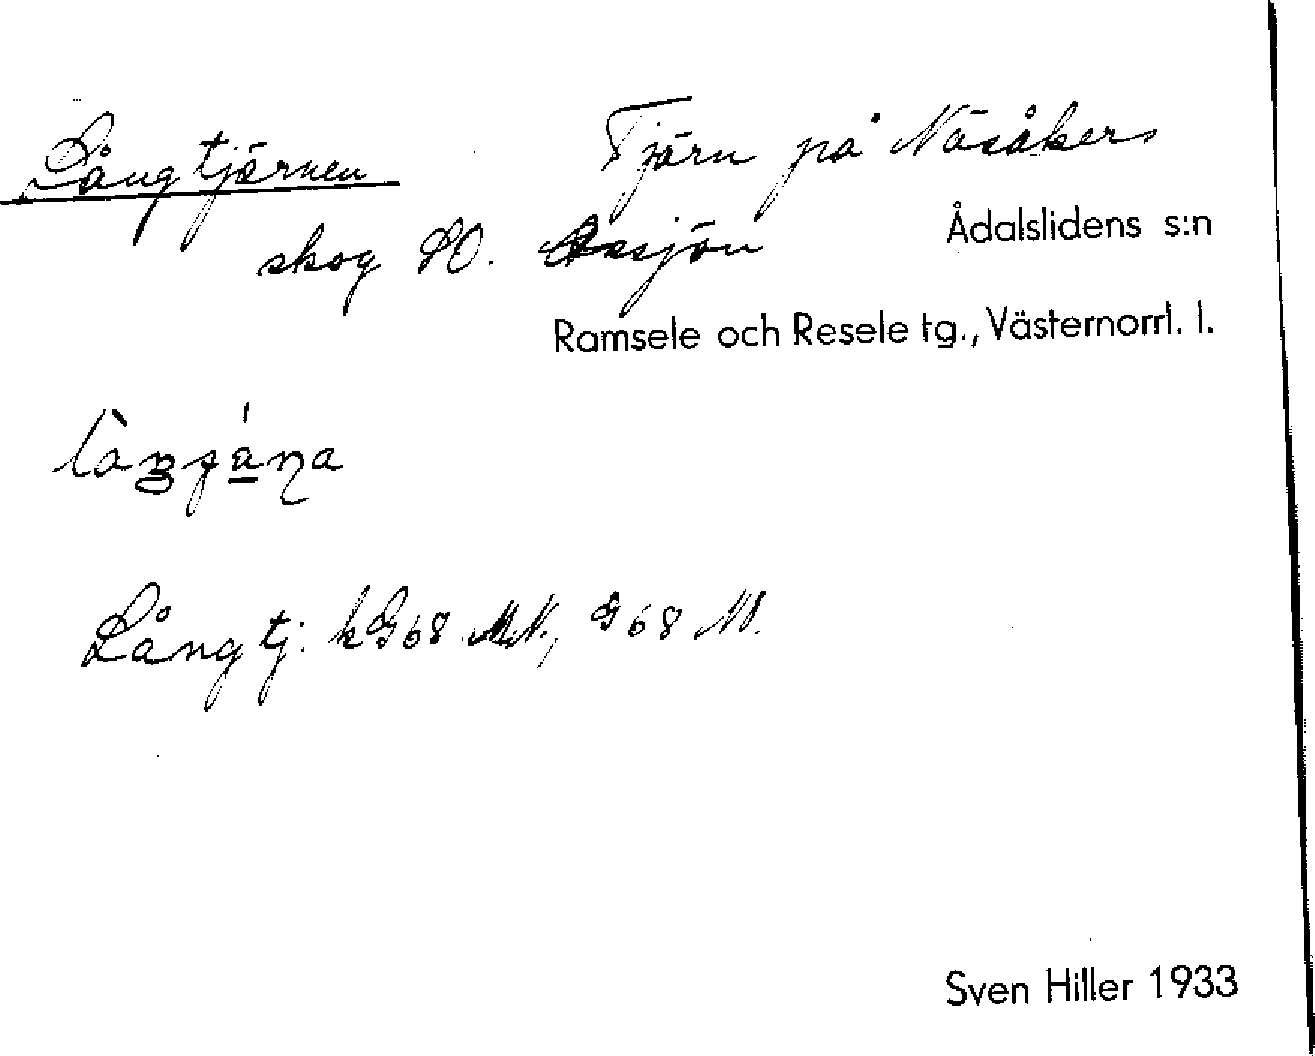 Långtjärnen Tjärn på Näsåkers
skog SO. sjön
Ådalslidens s:n
Ramsele och Resele tg., Västernorrl. l.
Långtj. kG68 MN., G68 NV.
Sven Hiller 1933